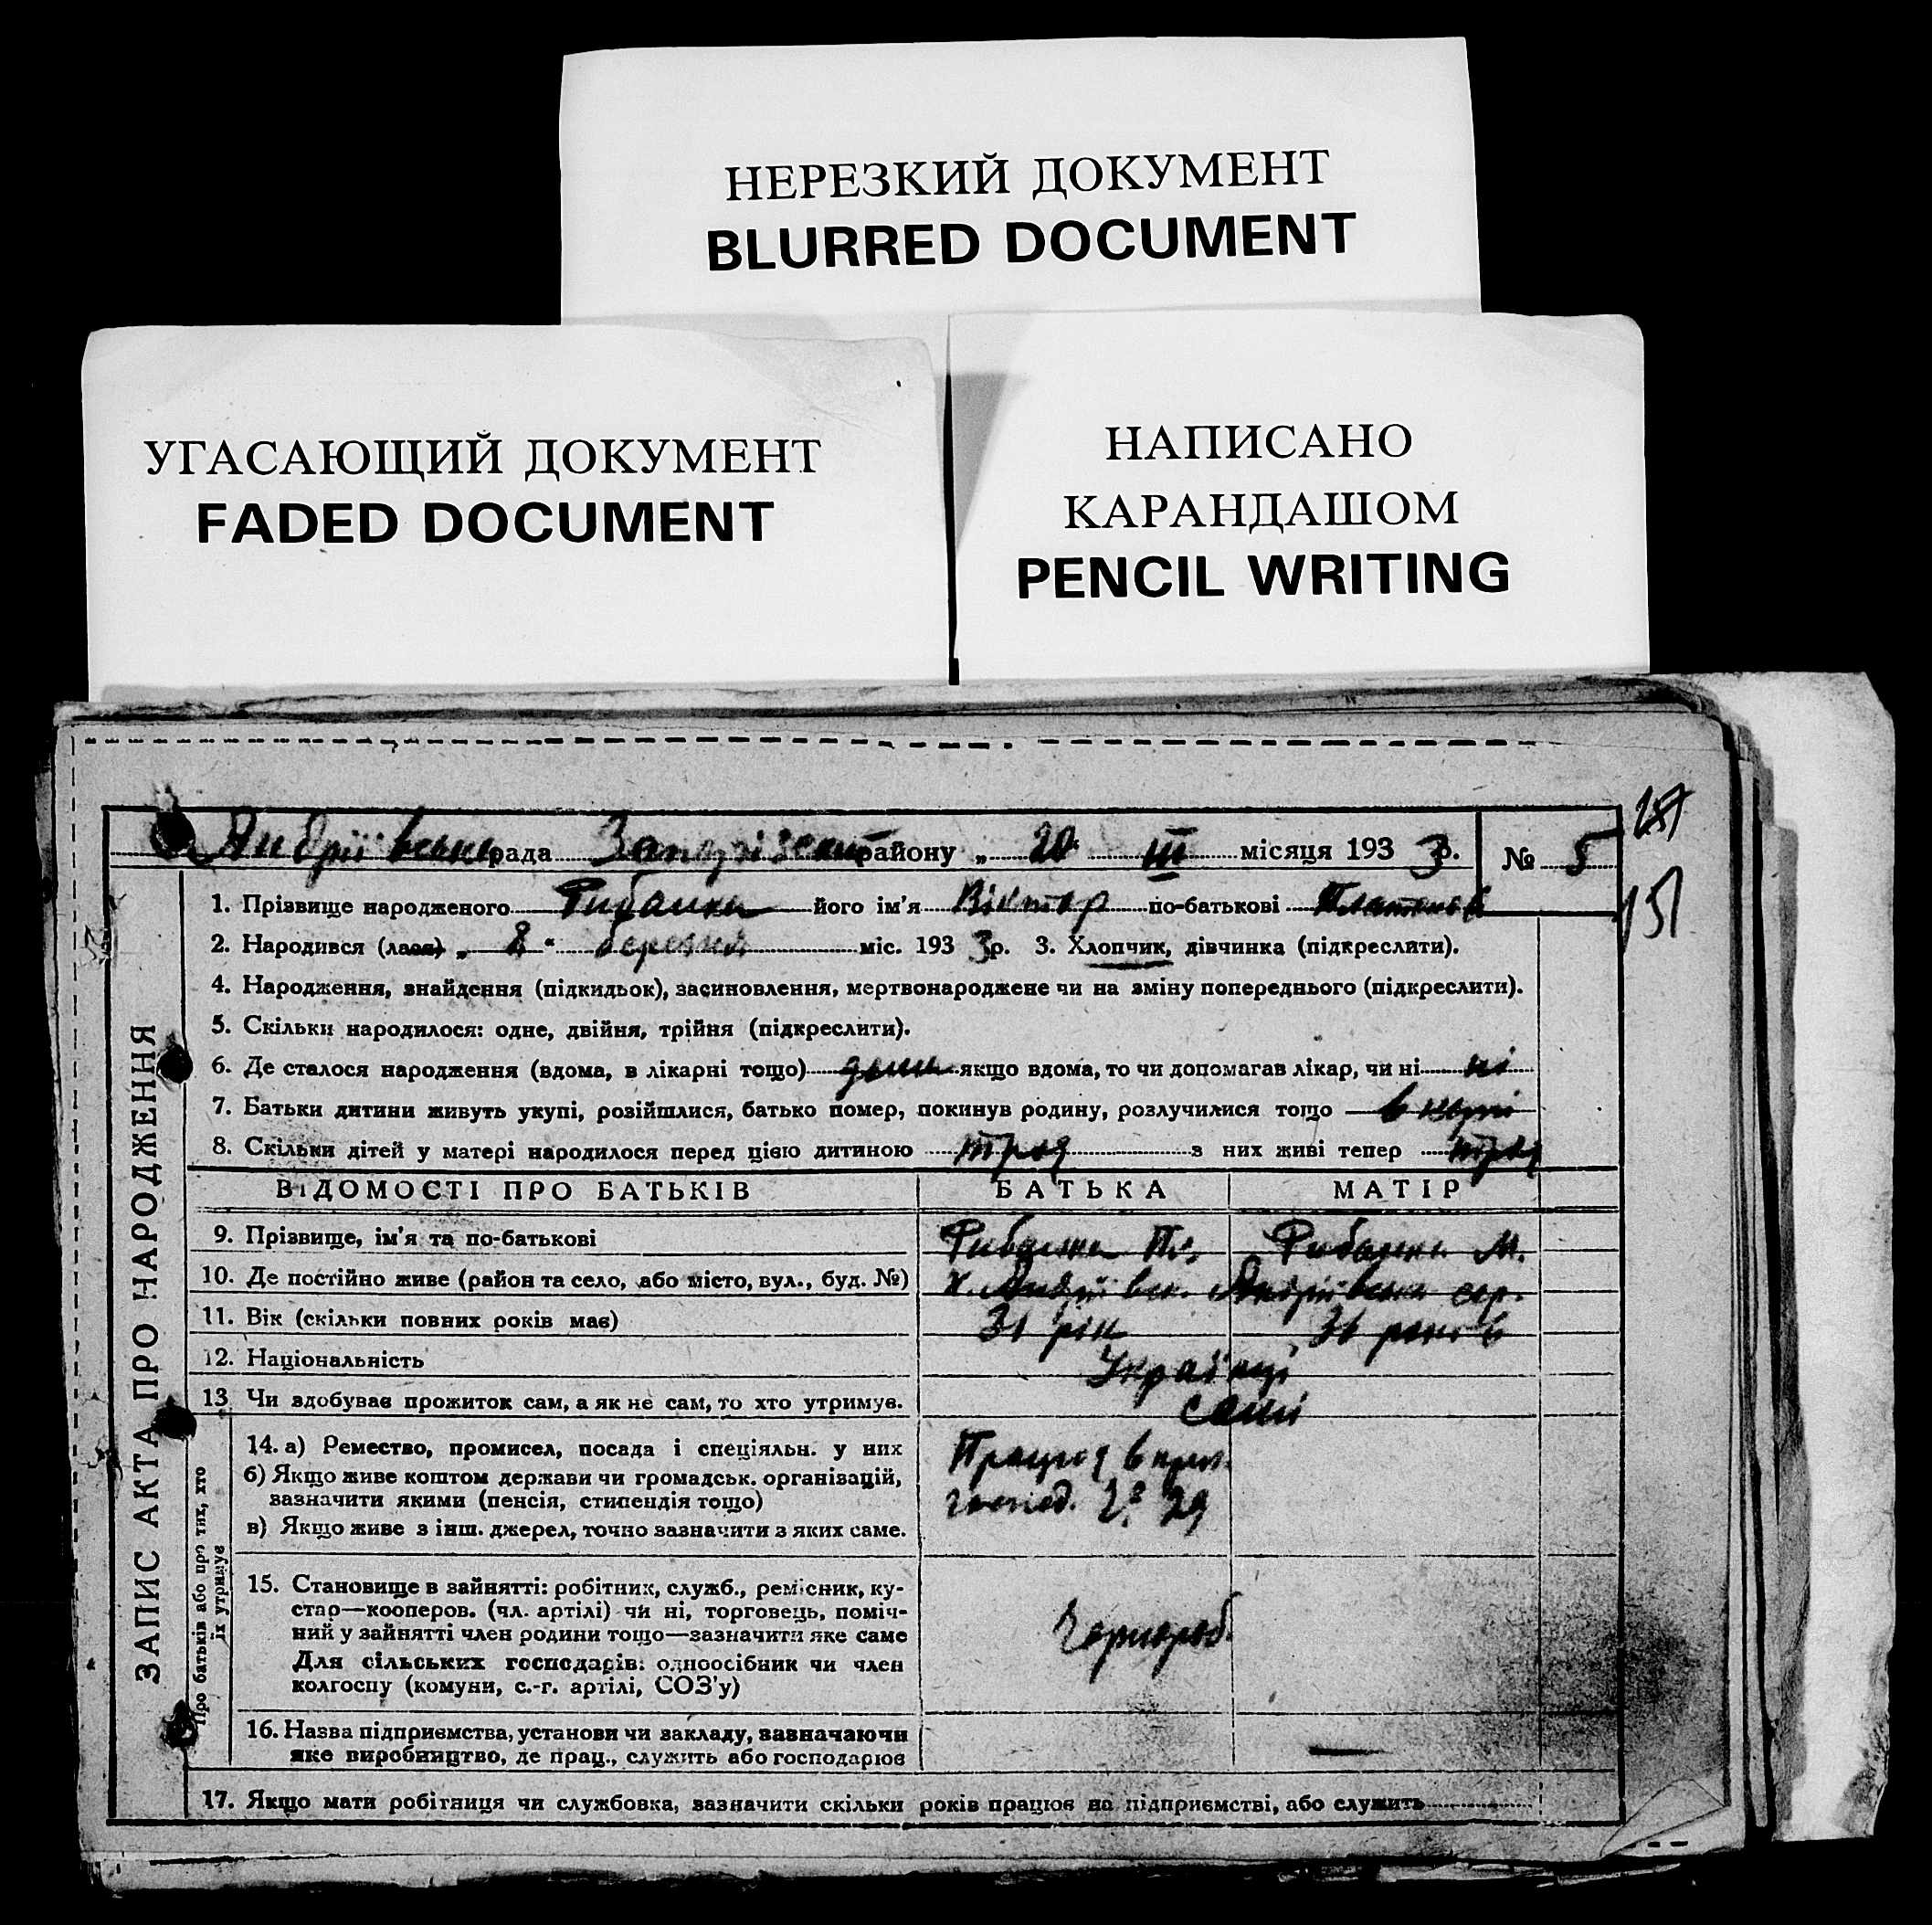 НЕРЕЗКИЙ ДОКУМЕНТ
BLURRED DOCUMENT
УГАСАЮЩИЙ ДОКУМЕНТ
FADED DOCUMENT
НАПИСАНО
КАРАНДАШОМ
PENCIL WRITING
ЗАПИС АКТА ПРО НАРОДЖЕННЯ
рада району „ 20 III місяця 193 3 р. № 5
151
1. Прізвище народженого його ім'я Віктор по-батькові
2. Народився (лася) „ 8 “ березня міс. 193 3 р. 3. Хлопчик, дівчинка (підкреслити).
4. Народження, знайдення (підкидьок), засиновлення, мертвонароджене чи на зміну попереднього (підкреслити).
5. Скільки народилося: одне, двійня, трійня (підкреслити).
6. Де сталося народження (вдома, в лікарні тощо) дома якщо вдома, то чи допомагав лікар, чи ні ні
7. Батьки дитини живуть укупі, розійшлися, батько помер, покинув родину, розлучилися тощо
8. Скільки дітей у матері народилося перед цією дитиною троя з них живі тепер троя
ВІДОМОСТІ ПРО БАТЬКІВ БАТЬКА МАТІР
9. Прізвище, ім'я та по-батькові М.
10. Де постійно живе (район та село, або місто, вул., буд. №)
11. Вік (скільки повних років має) 31 рік 31 років
12. Національність Українці
13 Чи здобуває прожиток сам, а як не сам, то хто утримує. самі
Про батьків або про тих, хто
їх утримує
14. а) Ремество, промисел, посада і спеціяльн. у них
б) Якщо живе коштом держави чи громадськ. організацій,
зазначити якими (пенсія, стипендія тощо)
в) Якщо живе з інш. джерел, точно зазначити з яких саме.
15. Становище в зайнятті: робітник, служб., ремісник, ку-
стар—кооперов. (чл. артілі) чи ні, торговець, поміч-
ний у зайнятті член родини тощо—зазначити яке саме
Для сільських господарів: одноосібник чи член
колгоспу (комуни, с.-г. артілі, СОЗ'у)
Чорнороб.
16. Назва підприємства, установи чи закладу, зазначаючи
яке виробництво, де прац., служить або господарює
17. Якщо мати робітниця чи службовка, зазначити скільки років працює на підприємстві, або служить